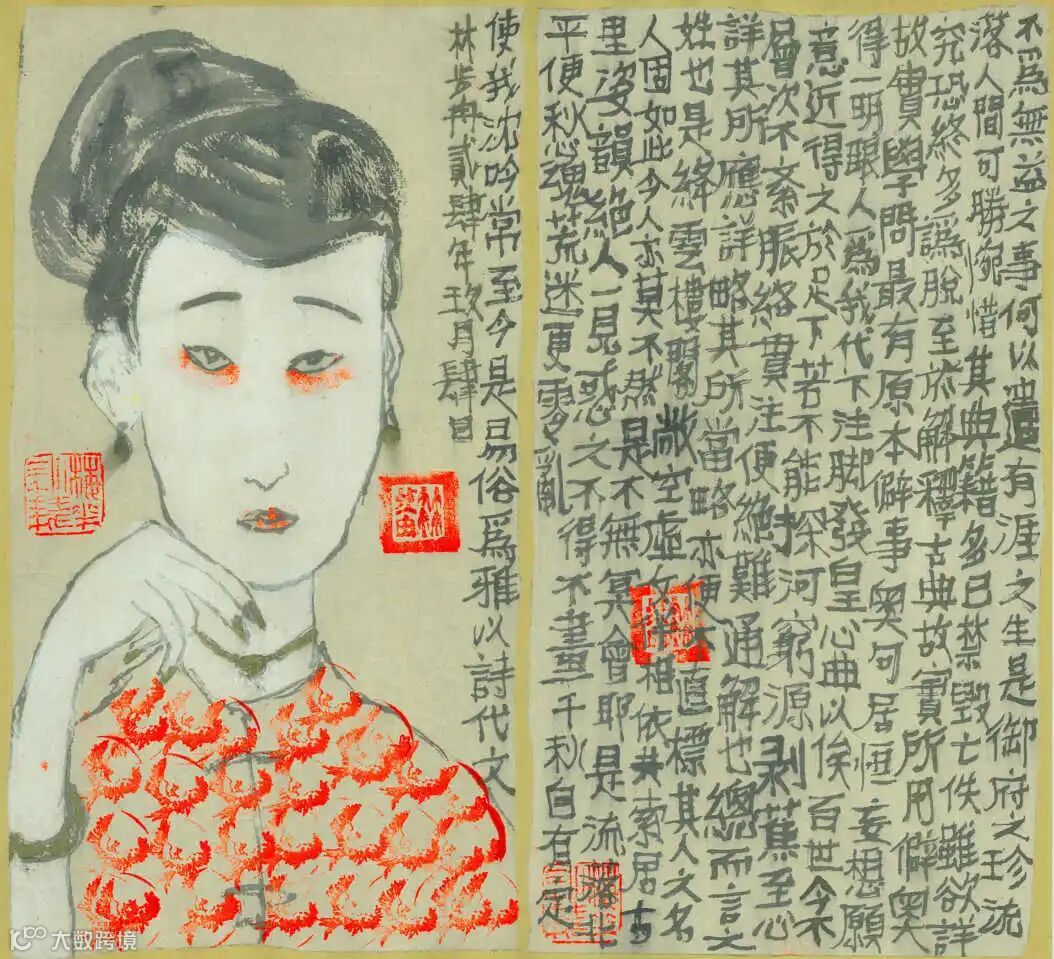 不爲無益之事何以遣有涯之生是御府之珍流
落人間可勝惋惜其典籍多已禁毀亡佚雖欲詳
究恐終多譌脫至於解釋古典故實所用僻奧
故實學問最有原本僻事奧句居恒妄想願
得一明眼人爲我代下注脚發皇心曲以俟百世今不
意近得之於足下若不能探河窮源剥蕉至心
層次不紊脈絡貫注便絕難通解也總而言之
詳其所應詳略其所當略亦便不直標其人之名
姓也是絳雲樓閣敞空虛女伴相依共索居古
人固如此今人亦莫不然是不無冥會耶是流落北
里姿韻絕人一見惑之不得不畫千秋自有定
平便愁魂荒迷更零亂
使我沈吟常至今是易俗爲雅以詩代文
林步冉貳肆年玖月肆日
大数跨境